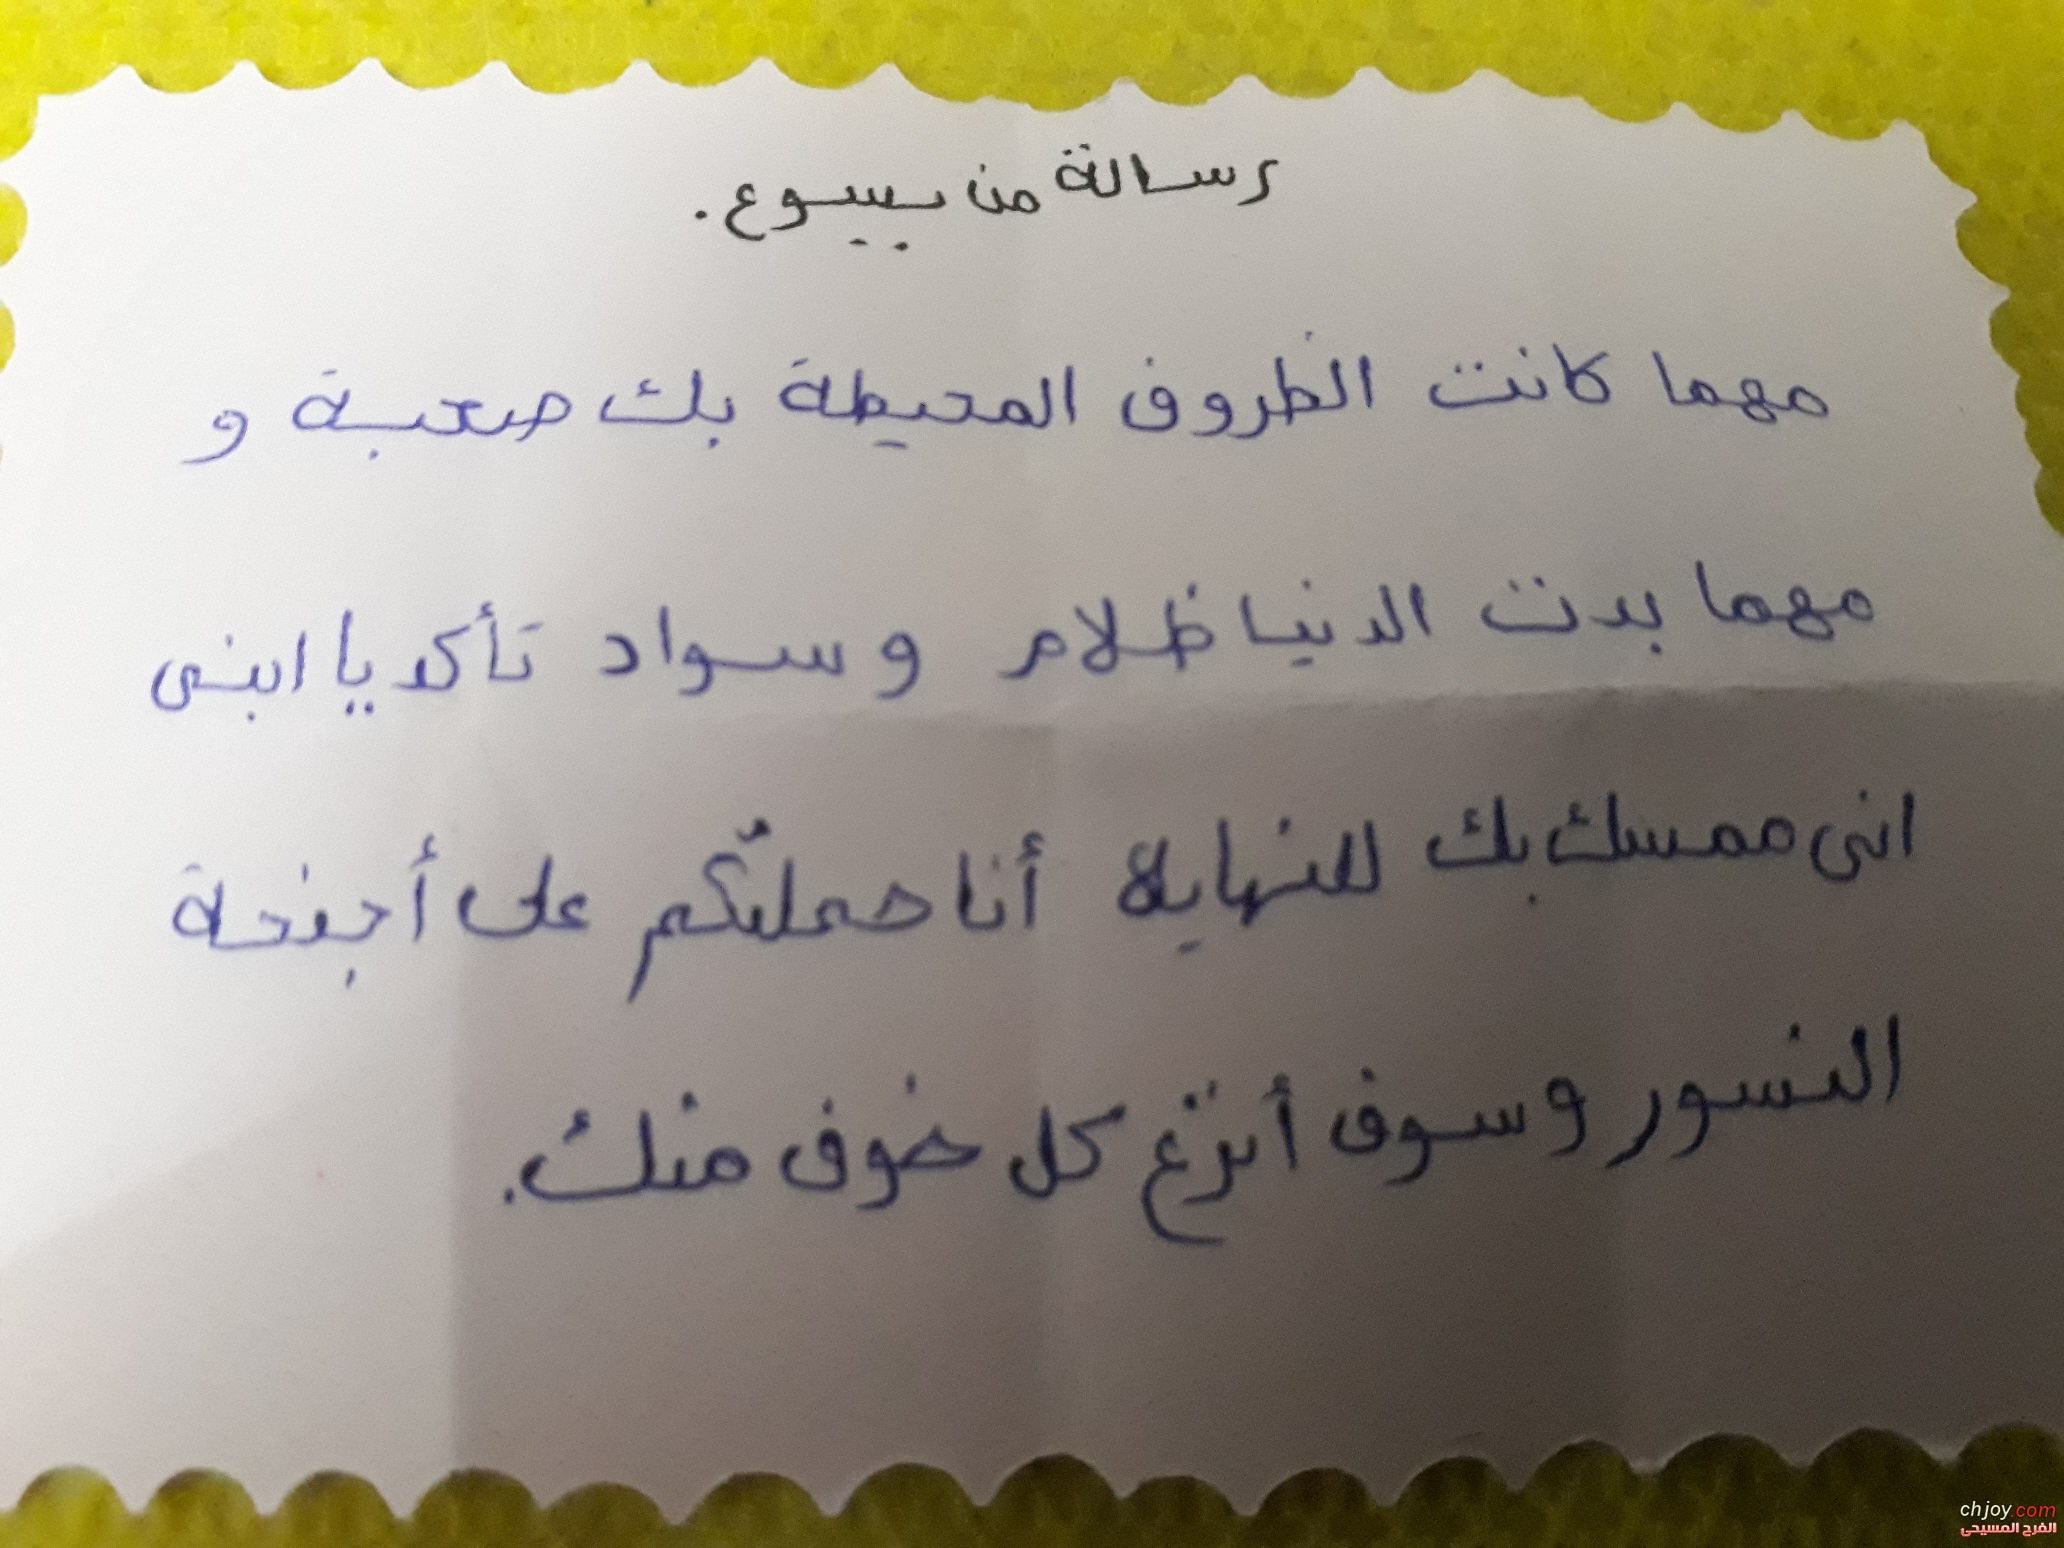 رسالة من يسوع.
مهما كانت الظروف المحيطة بك صعبة و
مهما بدت الدنيا ظلام و سواد تأكد يا ابنى
انى ممسك بك للنهاية أنا حملتكم على أجنحة
النسور و سوف أنزع كل خوف منك.
chjoy.com
الفرح المسيحى